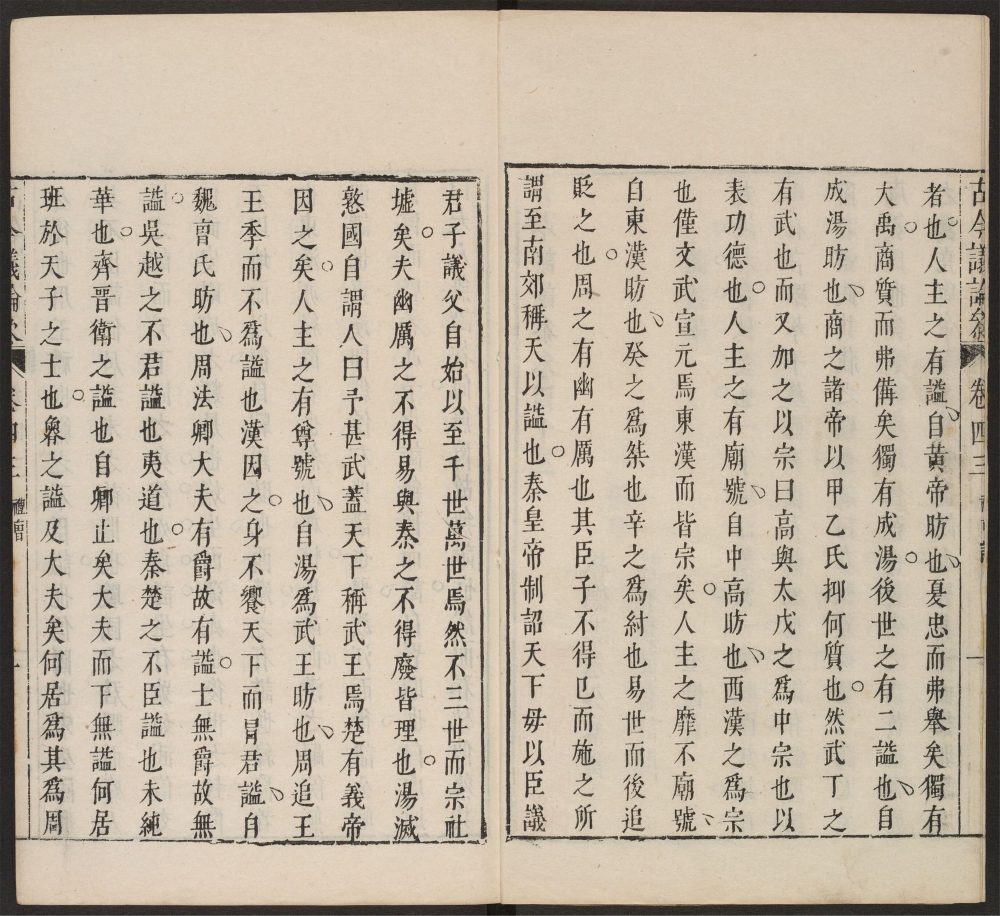 古今議論參 卷四三
者也人主之有謚自黃帝昉也夏忠而弗舉矣獨有
大禹商質而弗備矣獨有成湯後世之有二謚也自
成湯昉也商之諸帝以甲乙氏抑何質也然武丁之
有武也而又加之以宗曰高與太戊之爲中宗也以
表功德也人主之有廟號自中高昉也西漢之爲宗
也僅文武宣元焉東漢而皆宗矣人主之靡不廟號
自東漢昉也癸之爲桀也辛之爲紂也易世而後追
貶之也周之有幽有厲也其臣子不得已而施之所
謂至南郊稱天以謚也秦皇帝制詔天下毋以臣議
君子議父自始以至千世萬世焉然不三世而宗社
墟矣夫幽厲之不得易與秦之不得廢皆理也湯滅
憝國自謂人曰予甚武蓋天下稱武王焉楚有義帝
因之矣人主之有尊號也自湯爲武王昉也周追王
王季而不爲謚也漢因之身不饗天下而冒君謚自
魏曺氏昉也周法卿大夫有爵故有謚士無爵故無
謚吳越之不君謚也夷道也秦楚之不臣謚也未純
華也齊晋衛之謚也自卿止矣大夫而下無謚何居
班於天子之士也魯之謚及大夫矣何居爲其爲周
卷四三 禮曾 一